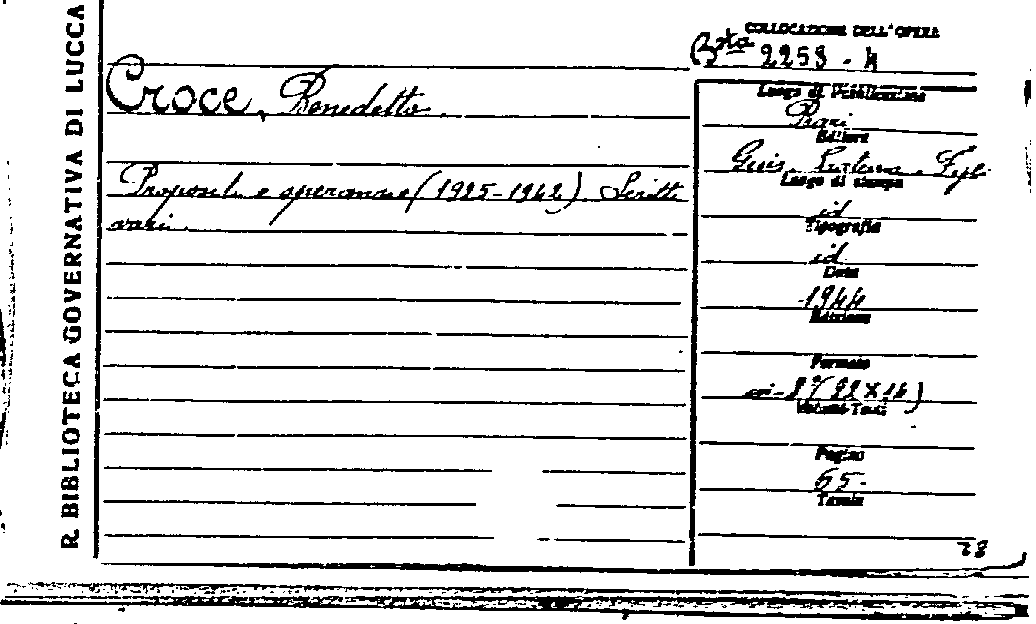 R. BIBLIOTECA GOVERNATIVA DI LUCCA
COLLOCAZIONE DELL'OPERA
Bsta 2253 - 4
Croce, Benedetto
Propositi e speranze (1925-1942) Scritti
vari.
Luogo di Pubblicazione
Bari
Editore
Gius. Laterza e Figli
Luogo di stampa
id
Tipografia
id
Data
1944
Edizione
Formato
in-8°(22×14)
Volumi-Tomi
Pagine
65-
Tavole
28